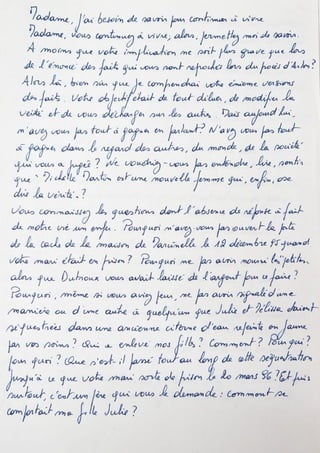 Madame, j'ai besoin de savoir pour continuer à vivre
Madame, vous continuez à vivre, alors, permettez moi de savoir.
A moins que votre implication ne soit plus grave que lors
de l'énoncé des faits qui vous sont reprochés lors du procès d'Arlon?
Alors là, bien sûr que je comprendrai votre énième version
des faits. Votre objectif était de tout diluer, de modifier la
vérité et de vous décharger sur les autres. Mais aujourd'hui,
n'avez vous pas tout à gagner en parlant? N'avez vous pas tout
à gagner dans le regard des autres, du monde, de la société
qui vous a jugée? Ne voudriez-vous pas entendre, lire, sentir
que "Michelle Martin est une nouvelle femme qui, enfin, ose
dire la vérité"?
Vous connaissez les questions dont l'absence de réponse a fait
de notre vie un enfer. Pourquoi n'avez vous pas ouvert la porte
de la cache de la maison de Marcinelle le 12 décembre 95 quand
votre mari était en prison? Pourquoi ne pas avoir nourri les petites,
alors que Dutroux vous avait laissé de l'argent pour ce faire?
Pourquoi, même si vous aviez peur, ne pas avoir signalé d'une
manière ou d'une autre à quelqu'un que Julie et Mélissa étaient
séquestrées dans une ancienne citerne d'eau repeinte en jaune
par vos soins? Qui a enlevé nos filles? Comment? Pourquoi?
Pour qui? Que s'est-il passé tout au long de cette séquestration
jusqu'à ce que votre mari sorte de prison le 20 mars 96? Et puis
surtout, c'est un père qui vous le demande: comment se
comportait ma fille Julie?